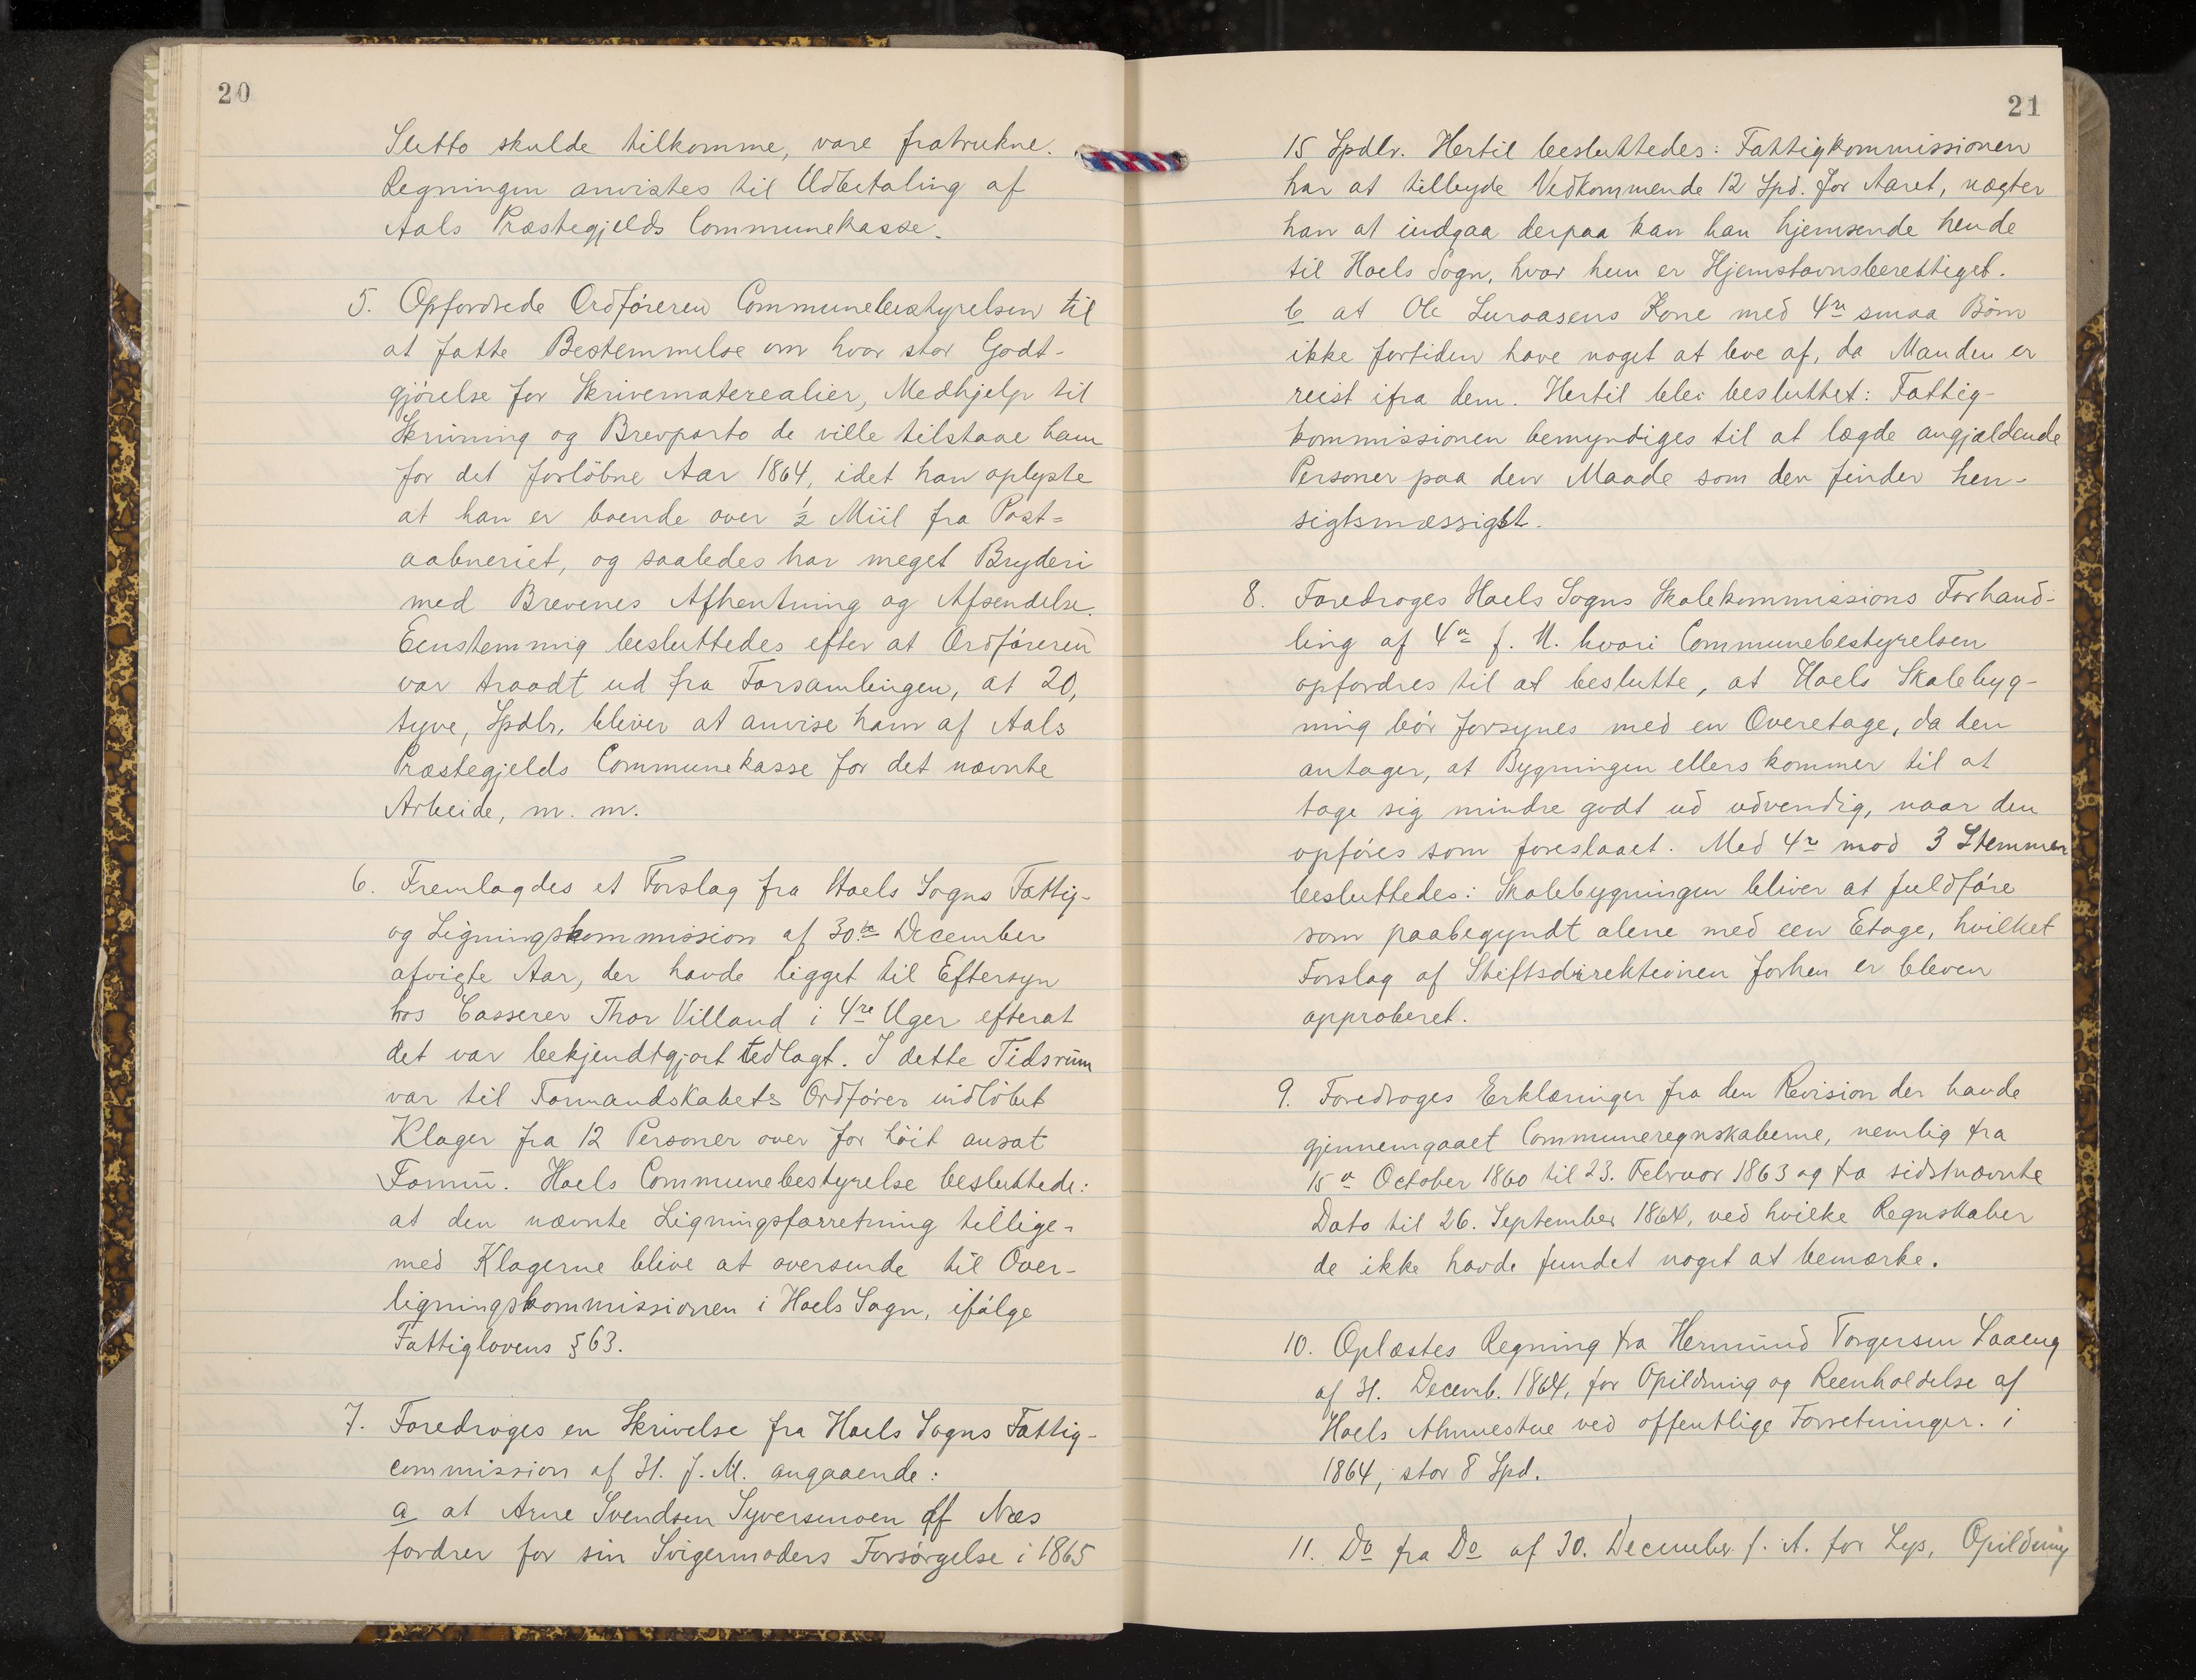 20
Slutto skulde tilkomme, vare fratrukne.
Regningen anvistes til Udbetaling af
Aals Præstegjelds Communekasse.
5. Opfordrede Ordføreren Communebestyrelsen til
at fatte Bestemmelse om hvor stor Godt-
gjørelse for Skrivematerealier, Medhjelp til
Skrivning og Brevporto de ville tilstaae ham
for det forløbne Aar 1864, idet han oplyste
at han er boende over ½ Miil fra Post=
aabneriet, og saaledes har meget Bryderi
med Brevenes Afhentning og Afsendelse.
Eenstemmig besluttedes efter at Ordføreren
var traadt ud fra Forsamlingen, at 20,
tyve, Spdlr. bliver at anvise ham af Aals
Præstegjelds Communekasse for det nævnte
Arbeide, m. m.
6. Fremlagdes et Forslag fra Hoels Sogns Fattig-
og Ligningskommission af 30te December
afvigte Aar, der havde ligget til Eftersyn
hos Casserer Thor Villand i 4re Uger efterat
det var bekjendtgjort tedlagt. I dette Tidsrum
var til Formandskabets Ordfører indløbet
Klager fra 12 Personer over for høit ansat
Formū. Hoels Communebestyrelse besluttede:
at den nævnte Ligningsforretning tillige-
med Klagerne blive at oversende til Over-
ligningskommissionen i Hoels Sogn, ifølge
Fattiglovens §63.
7. Foredroges en Skrivelse fra Hoels Sogns Fattig-
commission af 31. f. M. angaaende:
a at Arne Svendsen Syversmoen af Næs
fordrer for sin Svigermoders Forsørgelse i 1865
21
15 Spdlr. Hertil besluttedes: Fattigkommissionen
har at tilbyde Vedkommende 12 Spd. for Aaret, nægter
han at indgaa derpaa kan han hjemsende hende
til Hoels Sogn, hvor hun er Hjemstavnsberettiget.
b at Ole Luraasens Kone med 4re smaa Børn
ikke fortiden have noget at leve af, da Manden er
reist ifra dem. Hertil blev besluttet: Fattig-
kommissionen bemyndiges til at lægde angjældende
Personer paa den Maade som den finder hen-
sigtsmæssigst.
8. Foredroges Hoels Sogns Skolekommissions Forhand-
ling af 4de f. M. hvori Communebestyrelsen
opfordres til at beslutte, at Hoels Skolebyg-
ning bør forsynes med en Overetage, da den
antager, at Bygningen ellers kommer til at
tage sig mindre godt ud udvendig, naar den
opføres som foreslaaet. Med 4re mod 3 Stemmer
besluttedes: Skolebygningen bliver at fuldføre
som paabegyndt alene med een Etage, hvilket
Forslag af Stiftsdirektionen forhen er bleven
approberet.
9. Foredroges Erklæringer fra den Revision der havde
gjennemgaaet Communeregnskaberne, nemlig fra
15de October 1860 til 23. Februar 1863 og fra sidstnævnte
Dato til 26. September 1864, ved hvilke Regnskaber
de ikke havde fundet noget at bemærke.
10. Oplæstes Regning fra Hermund Torgersen Laaeng
af 31. Decemb. 1864, for Opildning og Reenholdelse af
Hoels Almuestue ved offentlige Forretninger. i
1864, stor 8 Spd.
11. Do fra Do af 30. December f. A. for Lys, Opildning